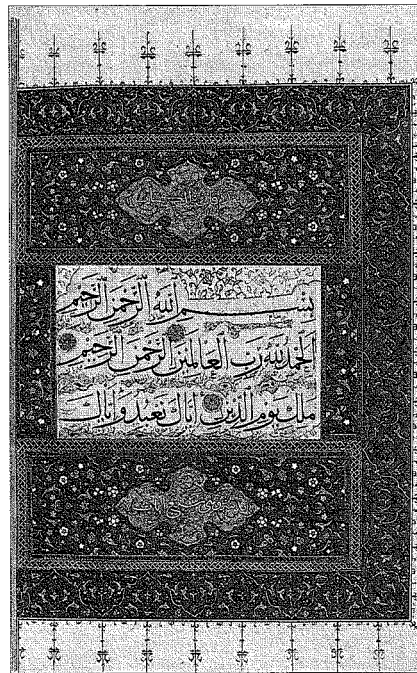 بسم الله الرحمن الرحيم
الحمد لله رب العالمين الرحمن الرحيم
ملك يوم الدين اياك نعبد واياك